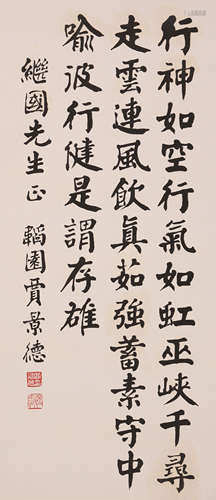 行神如空行氣如虹巫峽千尋
走雲連風飲真茹強蓄素守中
喻彼行健是謂存雄
繼國先生正 韜園賈景德